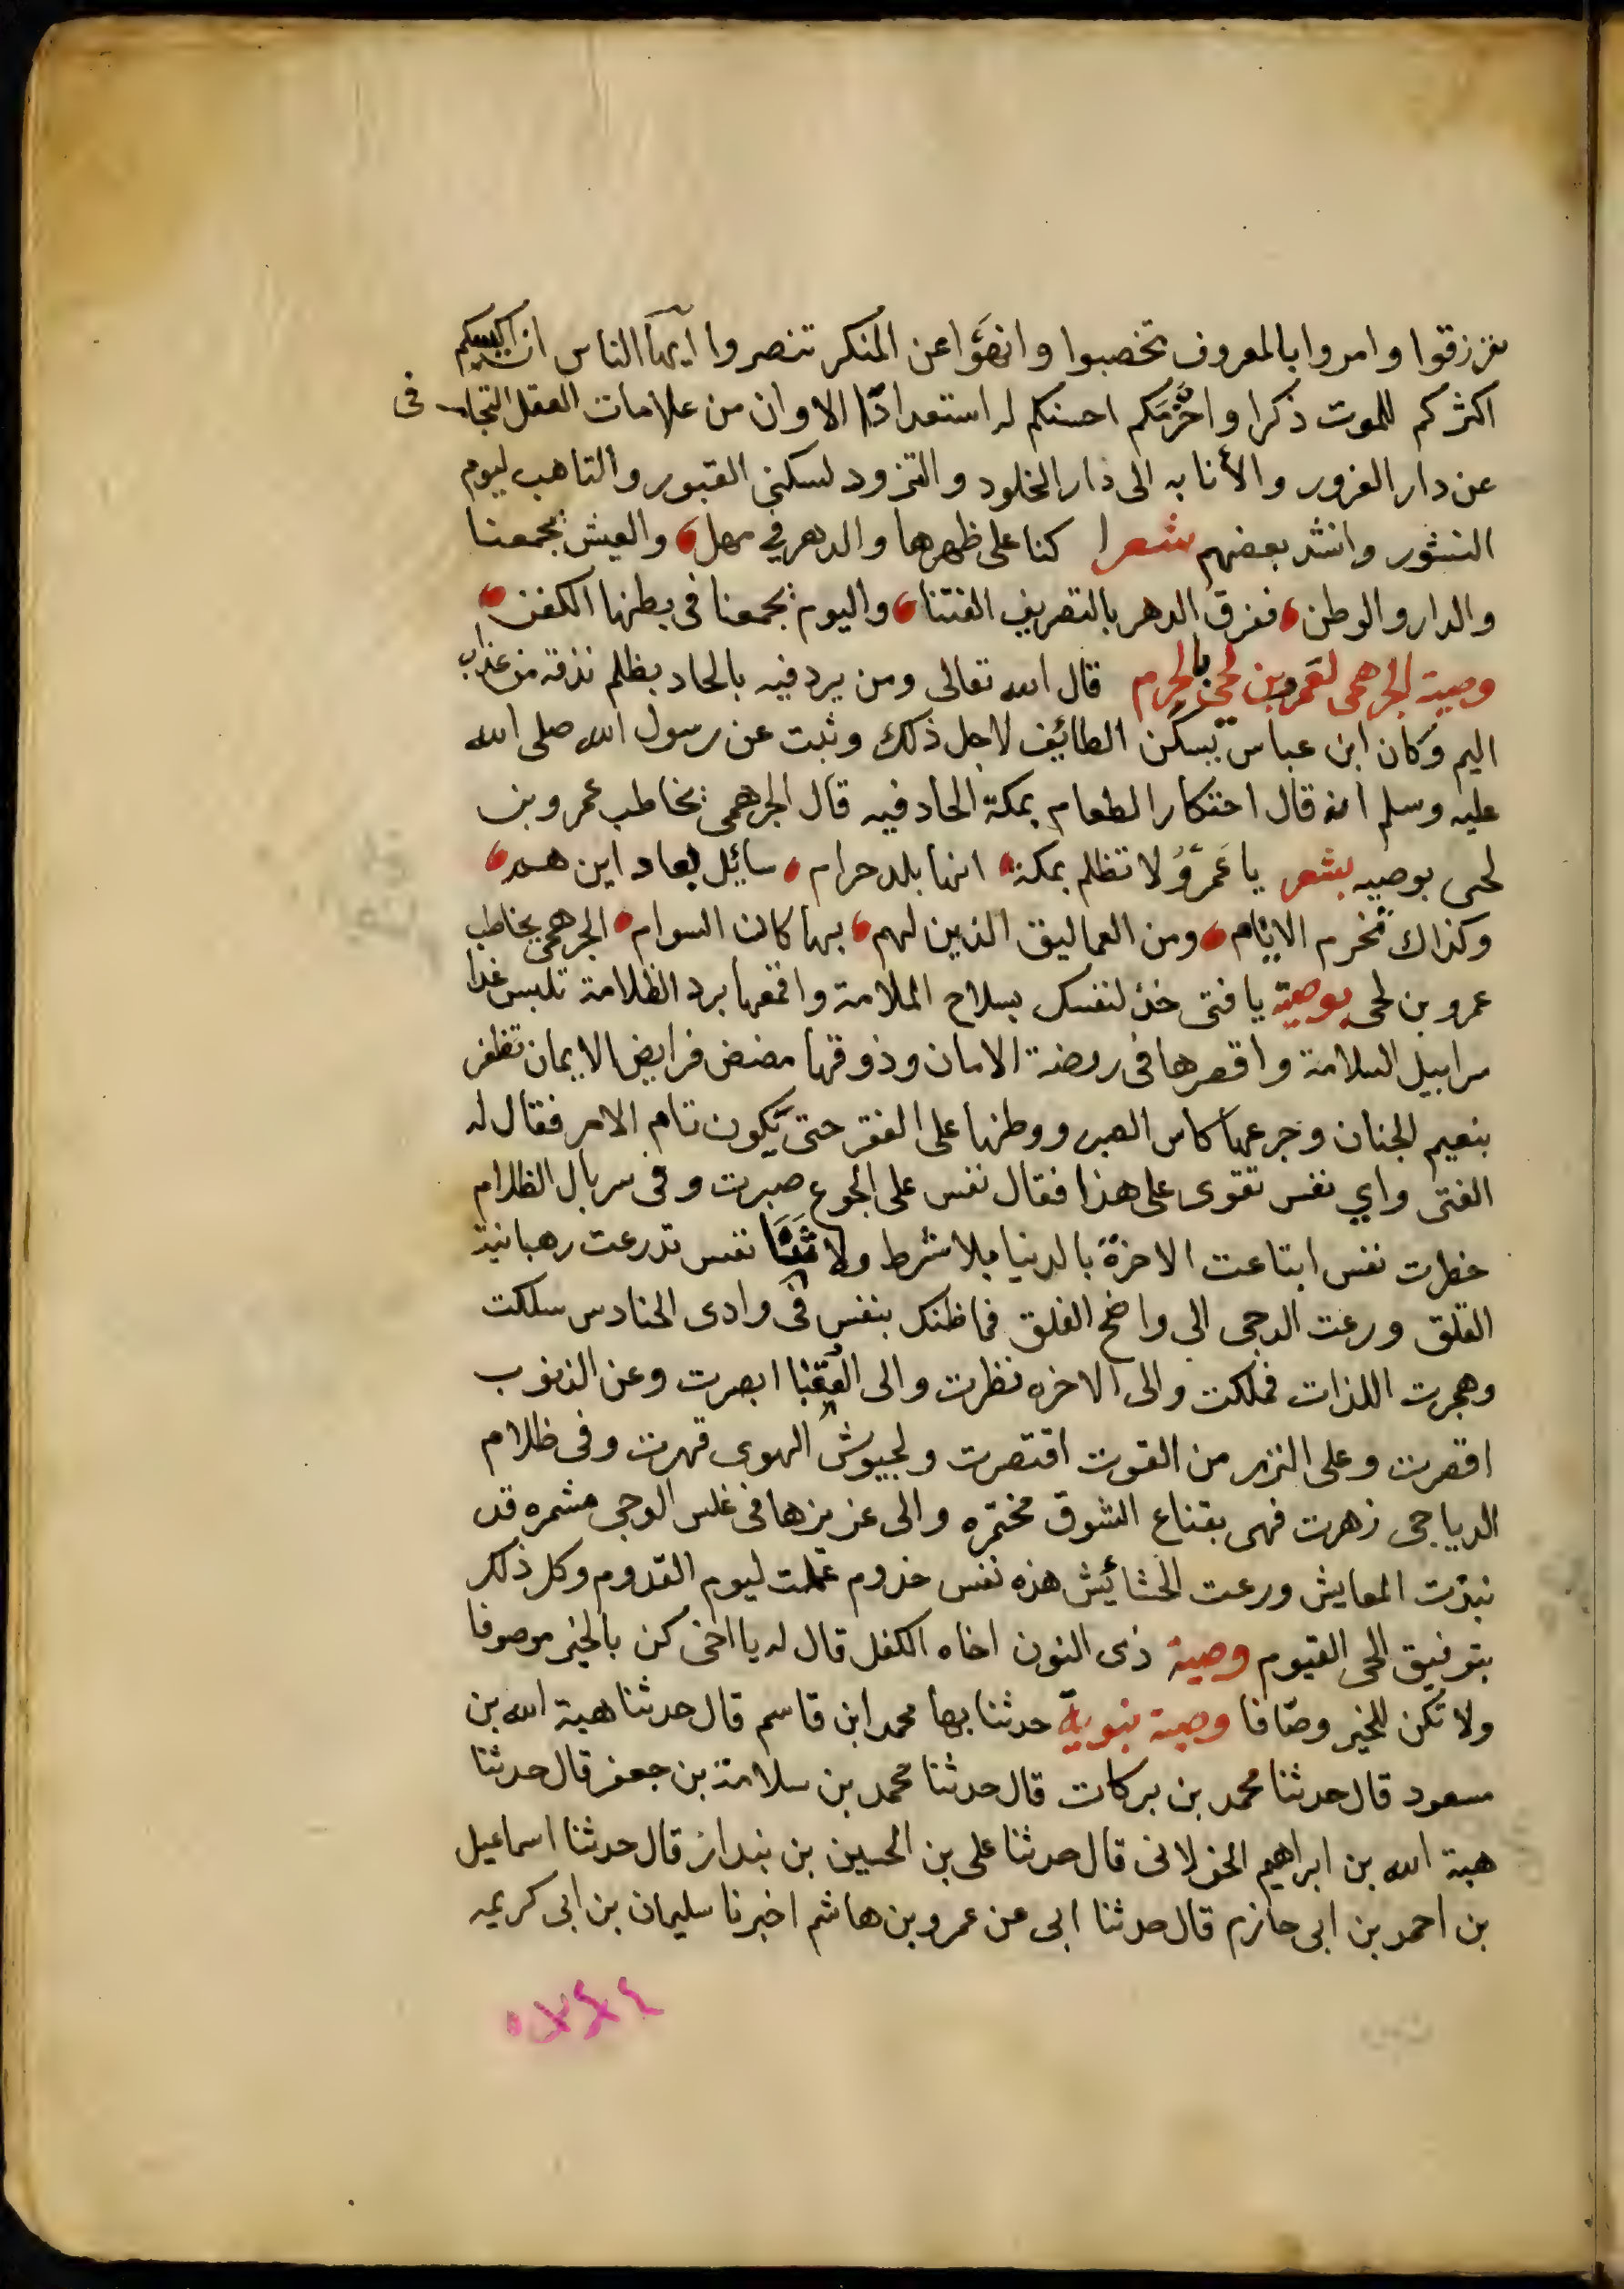 تزرقوا وامروا بالمعروف تخصبوا وانهوا عن المنكر تنصروا ايها الناس ان اكيسكم
اكثركم للموت ذكرا واحزمكم احسنكم له استعدادا الا وان من علامات العقل التجافى
عن دار الغرور والأنابه الى دار الخلود والتزود لسكنى القبور والتاهب ليوم
النشور وانشد بعضهم شعرا كنا على ظهرها والدهر في مهل والعيش يجمعنا
والدار والوطن ففرق الدهر بالتصريف الفتنا واليوم يجمعنا فى بطنها الكفن
وصية الجرهمى لعمرو بن لحى بالحرم قال الله تعالى ومن يرد فيه بالحاد بظلم نذقه من عذاب
اليم وكان ابن عباس يسكن الطائف لاجل ذلك وثبت عن رسول الله صلى الله
عليه وسلم انه قال احتكار الطعام بمكة الحاد فيه قال الجرهمى يخاطب عمرو بن
لحى يوصيه بشعر يا عمرو لا تظلم بمكة انها بلد حرام سائل بعاد اين هم
وكذاك تخرم الايام ومن العماليق الذين لهم بها كان السوام الجرهمى يخاطب
عمرو بن لحى بوصية يا فتى خذ لنفسك بسلاح الملامة واقمعها برد الظلامة تلبس غدا
سرابيل السلامة واقصرها فى روضة الامان وذوقها مضض فرايض الايمان تظفر
بنعيم الجنان وجرعها كاس الصبر ووطنها على الفقر حتى يكون تام الامر فقال له
الفتى واي نفس تقوى على هذا فقال نفس على الجوع صبرت وفى سربال الظلام
خطرت نفس ابتاعت الاخرة بالدنيا بلا شرط ولا ثنيا نفس تدرعت رهبانية
القلق ورعت الدجى الى واضح الفلق فماظنك بنفس فى وادى الحنادس سلكت
وهجرت اللذات فملكت والى الاخره نظرت والى العقبا ابصرت وعن الذنوب
اقصرت وعلى النزر من القوت اقتصرت ولجيوش الهوى قهرت وفى ظلام
الدياجى زهرت فهى بقناع الشوق مختمره والى عزيزها فى غلس الدجى مشمره قد
نبذت المعايش ورعت الحشائش هذه نفس خذوم عملت ليوم القدوم وكل ذلك
بتوفيق الحى القيوم وصية ذى النون اخاه الكفل قال له يا اخى كن بالخير موصوفا
ولا تكن للخير وصّافا وصية نبوية حدثنا بها محمد ابن قاسم قال حدثنا هبة الله بن
مسعود قال حدثنا محمد بن بركات قال حدثنا محمد بن سلامة بن جعفر قال حدثنا
هبة الله بن ابراهيم الخولانى قال حدثنا على بن الحسين بن بندار قال حدثنا اسماعيل
بن احمد بن ابى حازم قال حدثنا ابى عن عمرو بن هاشم اخبرنا سليمان بن ابى كريمه